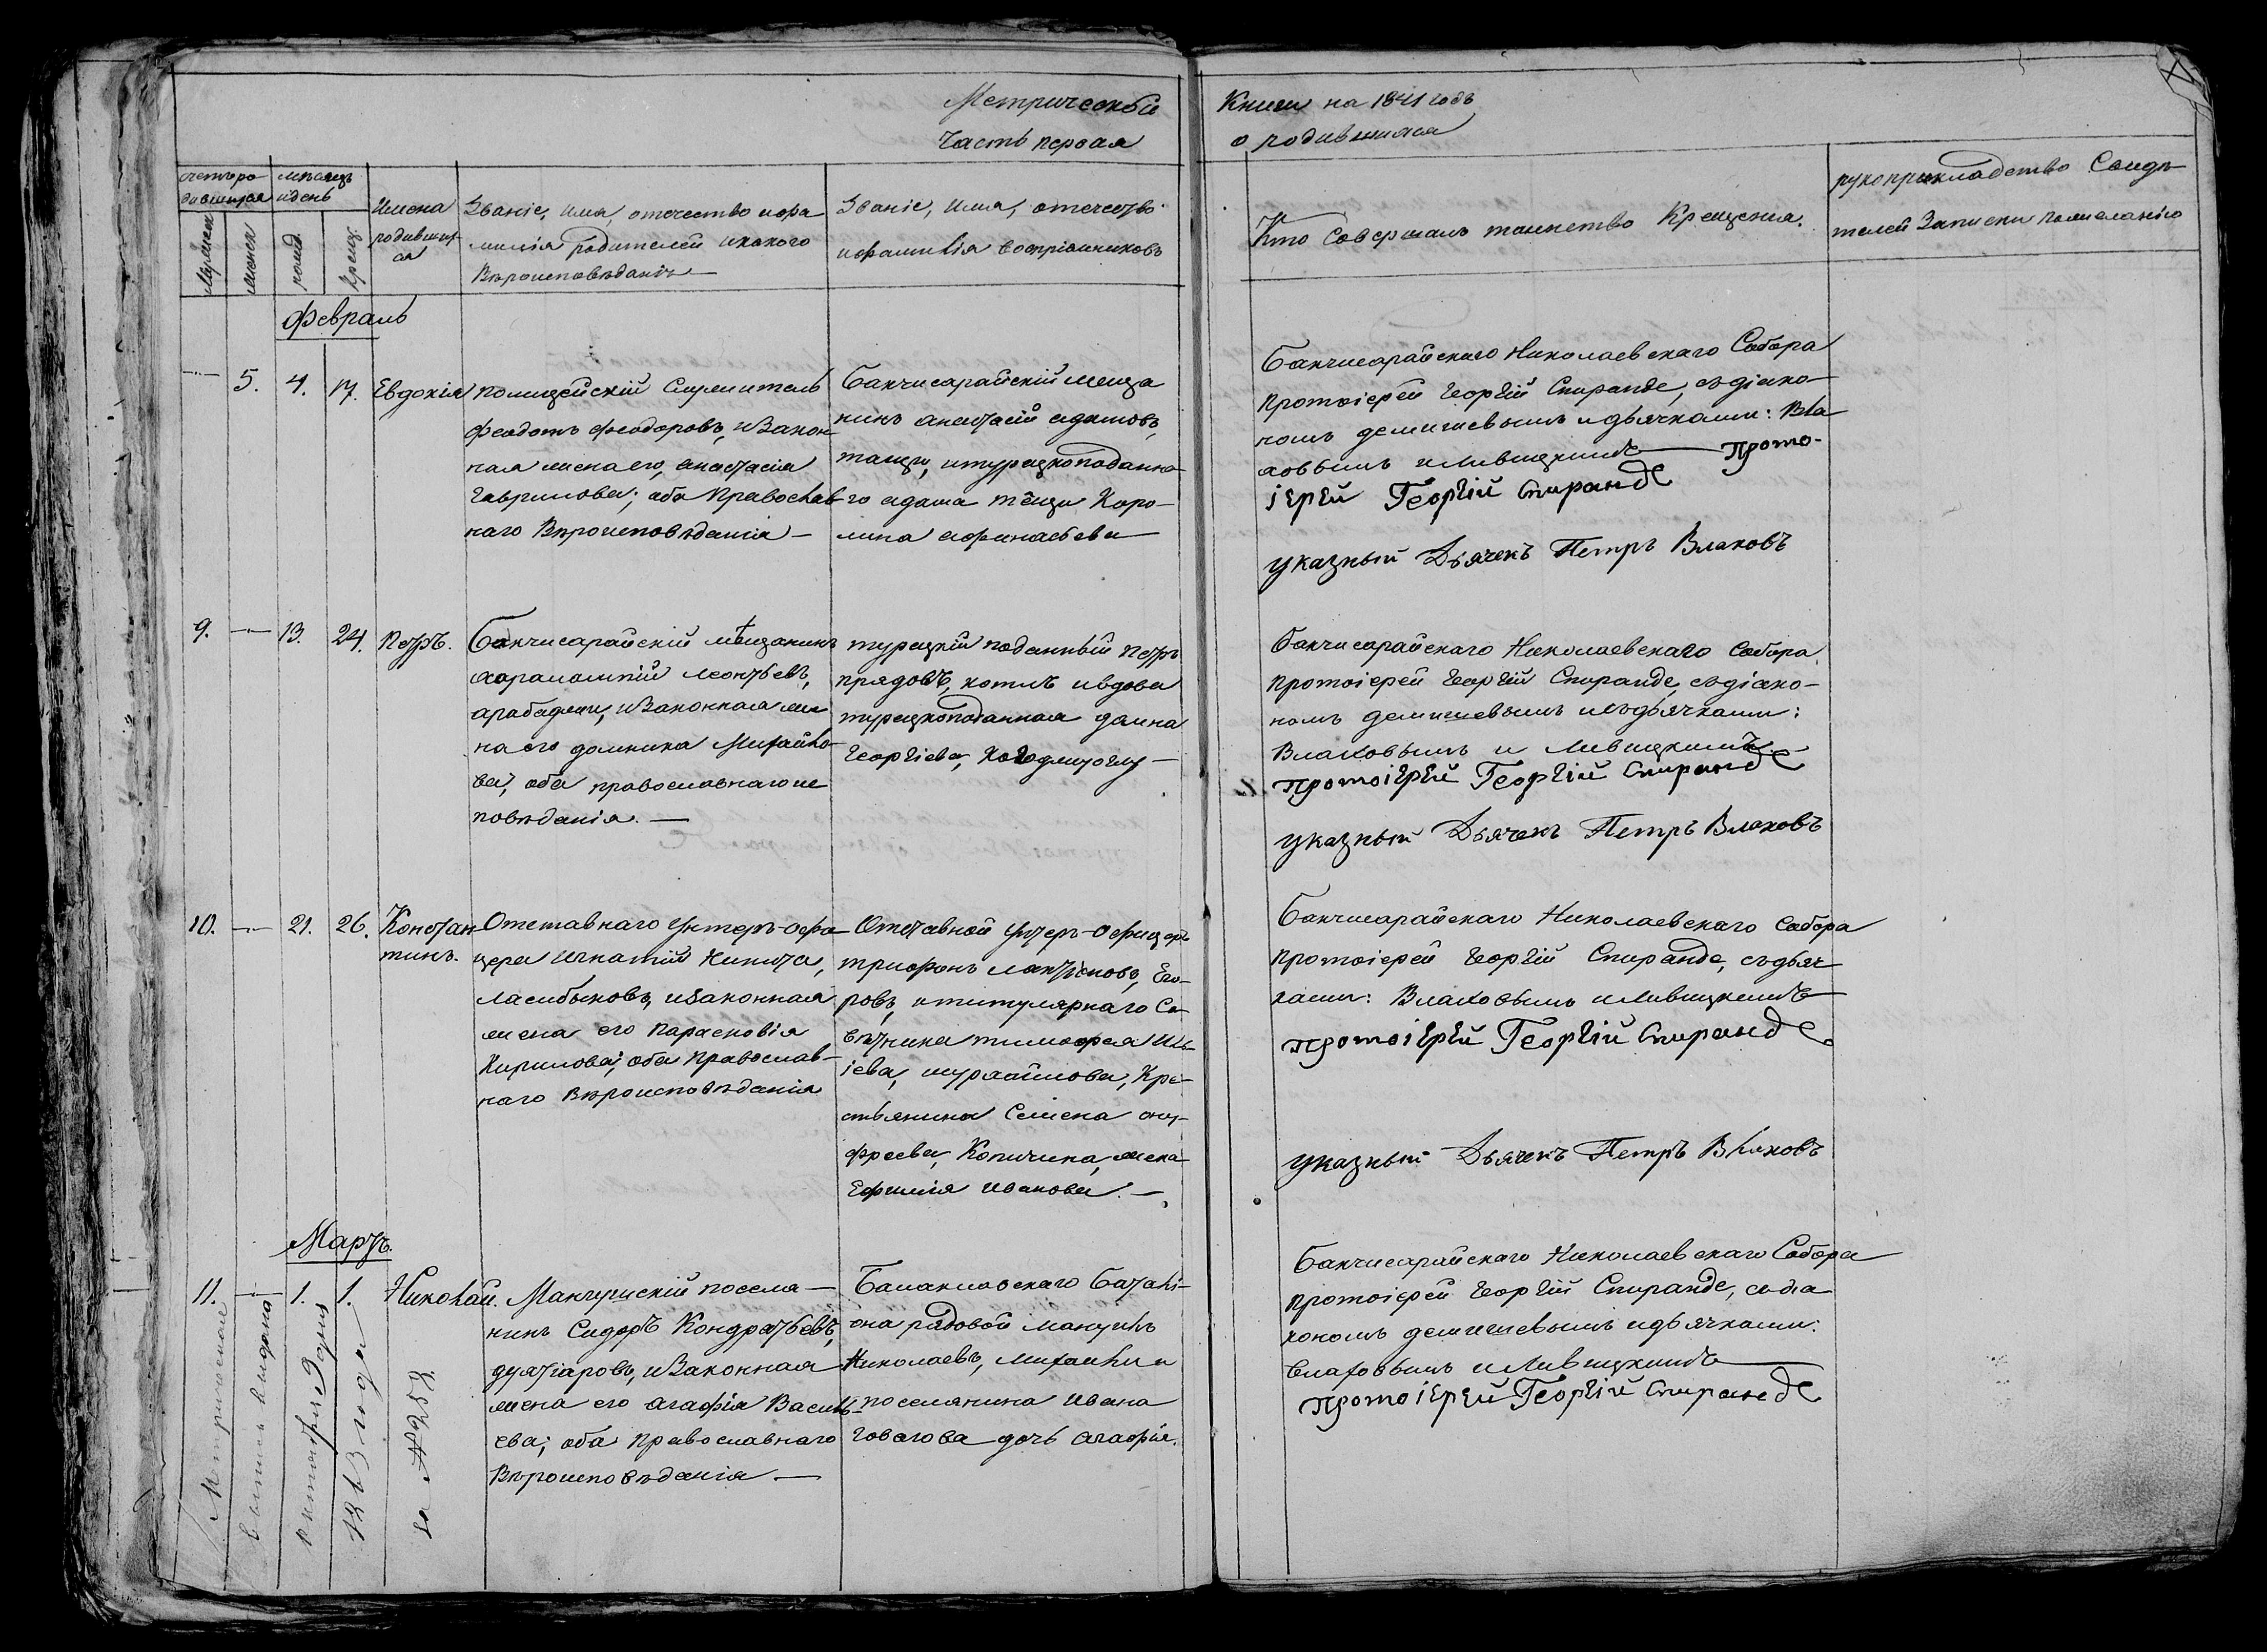 Метрической
Часть первая
Книги на 1841 годъ
о родившихся
счетъ ро-
дившихся
мѣсяцъ
и день
Мужеска
Женска
рожд.
крещ.
Имена
родивших-
ся
Званіе, имя, отечество и фа
милія родителей и какого
Вѣроисповѣданія
Званіе, имя, отечество
и фамилія воспріемниковъ
Кто Совершалъ таинство Крещенія.
рукоприкладство Свидѣ-
телей Записки по желанію
Февраль
5. 4. 17. Евдокія
полицейскій Служитель
Феодотъ Феодоровъ, и Закон-
ная жена его, анастасія
Гаврилова; оба Православ-
наго Вѣроисповѣданія
Бакчисарайскій меща
нинъ анастасій адамовъ,
танцу, и турецкоподанна-
го адама Каро-
лина афанасьева
Бакчисарайскаго Николаевскаго Собора
Протоіерей Георгій Спиранде, съ діако-
номъ демишевымъ и дьячками: Вла
ховымъ и Ливицкимъ Прото-
іерей Георгій Спиранде
указный Дьячекъ Петръ Влаховъ
9. 13. 24. Петръ.
Бакчисарайскій мѣщанинъ
харалампій Леонтьевъ,
арабаджи, и Законная же
на его домника Михайло-
ва, оба православнаго ис
повѣданія.
турецкій поданный Петръ
прядовъ, и вдова
турецкоподанная дамна
Георгіева,
Бакчисарайскаго Николаевскаго Собора
Протоіерей Георгій Спиранде, съ діако-
номъ демишевымъ и съ дьячками:
Влаховымъ и Ливицкимъ
протоіерей Георгій Спиранде
указный Дьячекъ Петръ Влаховъ
10. 21. 26. Констан-
тинъ.
Отставнаго Унтеръ-офи
цера Игнатій Никита,
и законная
жена его Парасковія
Кирилова; оба Православ-
наго Вѣроисповѣданія
Отставной Унтеръ-офицеръ
трифонъ Его-
ровъ, и титулярнаго Со
вѣтника тимофея Иль-
іева, Кре-
стьянина Семена ону-
фреева, Копичина, жена
Ефимія Иванова.
Бакчисарайскаго Николаевскаго Собора
Протоіерей Георгій Спиранде, съ дьяч
ками: Влаховымъ и Ливицкимъ
протоіерей Георгій Спиранде
указный Дьячекъ Петръ Влаховъ
Мартъ.
11. 1. 1. Николай.
Мангушскій поселя-
нинъ Сидоръ Кондратьевъ,
и Законная
жена его агафія Василь-
ева; оба Православнаго
Вѣроисповѣданія
Балаклавскаго Баталі-
она рядовой
Николаевъ, Михаили и
поселянина Ивана
Говагова дочь агафія.
Бакчисарайскаго Николаевскаго Собора
Протоіерей Георгій Спиранде, съ діа
кономъ демишевымъ и дьячками:
Влаховымъ и Ливицкимъ
протоіерей Георгій Спиранде
Метрическая
выпись выдана
9 дня
1863 года
за № 258.